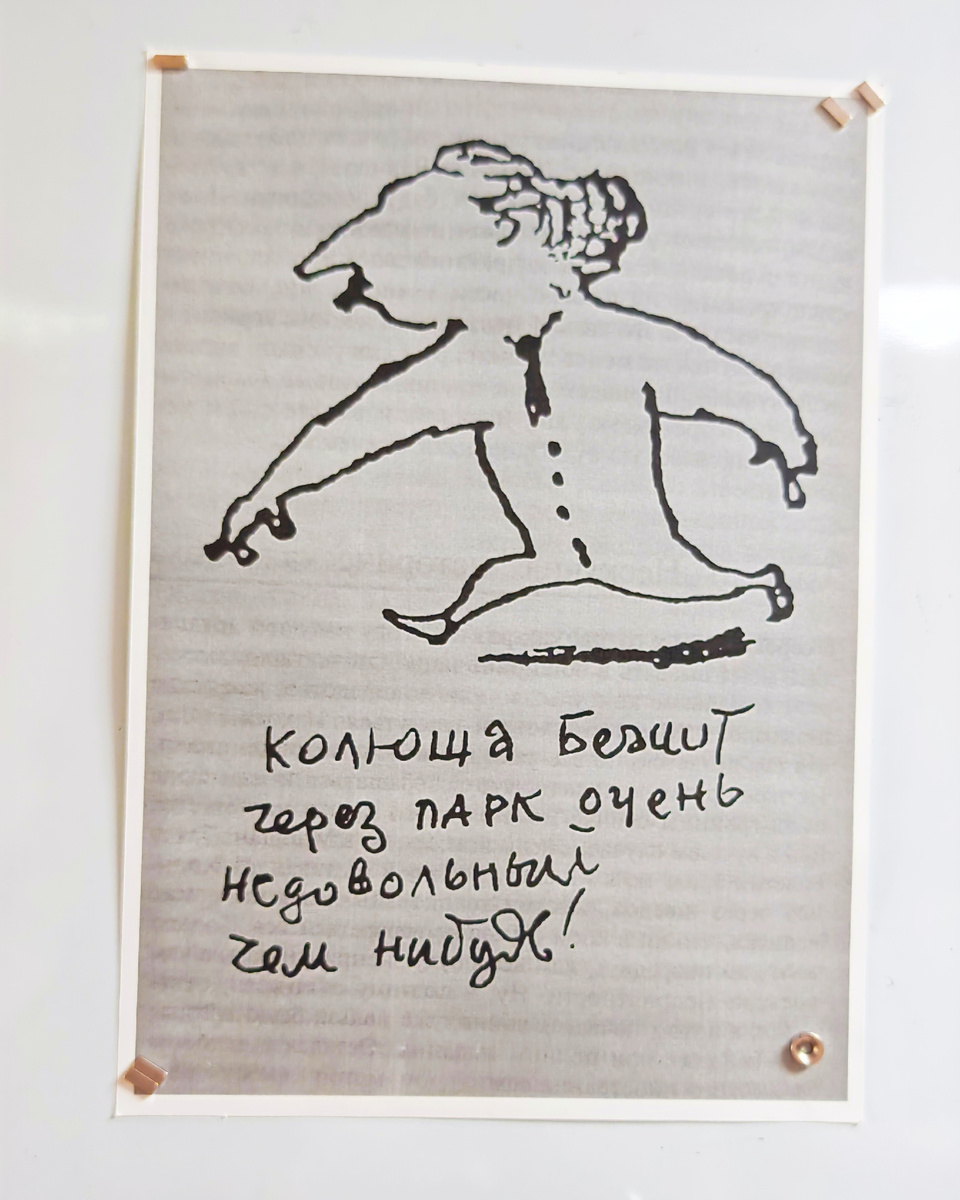 Колюша Бежит
через ПАРК очень
недовольный
чем нибудь!